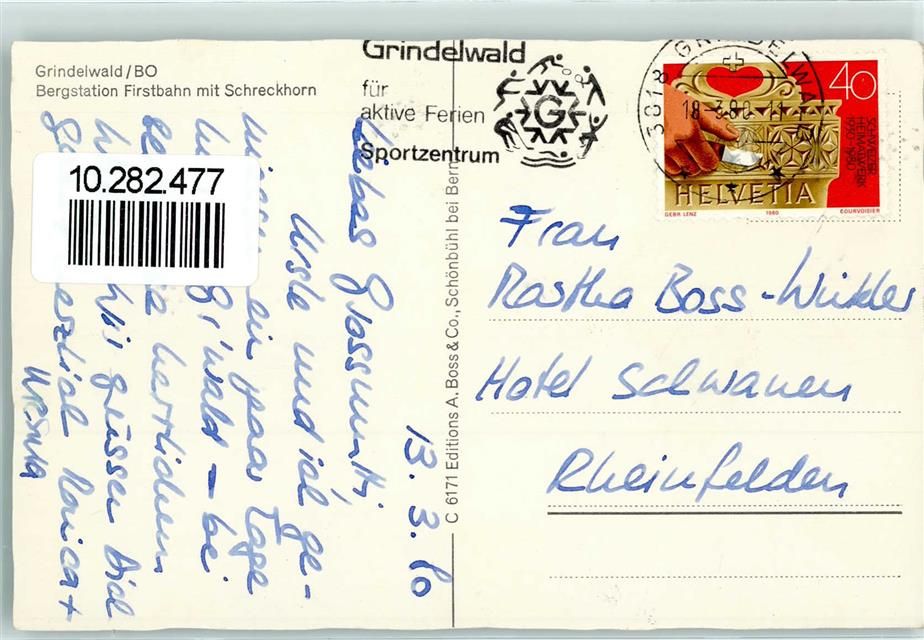 Grindelwald/BO
Bergstation Firstbahn mit Schreckhorn
10.282.477
13. 3. 80
Liebas Grossmutti,
Ursle und ich ge-
ein paar Tage
G'wald - bei
herrlichem
Wir grüssen Dich
Monica +
Ursula
C 6171 Editions A. Boss & Co., Schönbühl bei Bern
Grindelwald
für
aktive Ferien
Sportzentrum
G
3818 GRINDELWALD
18-3.80-11
40
SCHWEIZER
HEIMATWERK
1930-1980
HELVETIA
GEBR. LENZ 1980 COURVOISIER
Frau
Martha Boss-Winkler
Hotel Schwanen
Rheinfelden